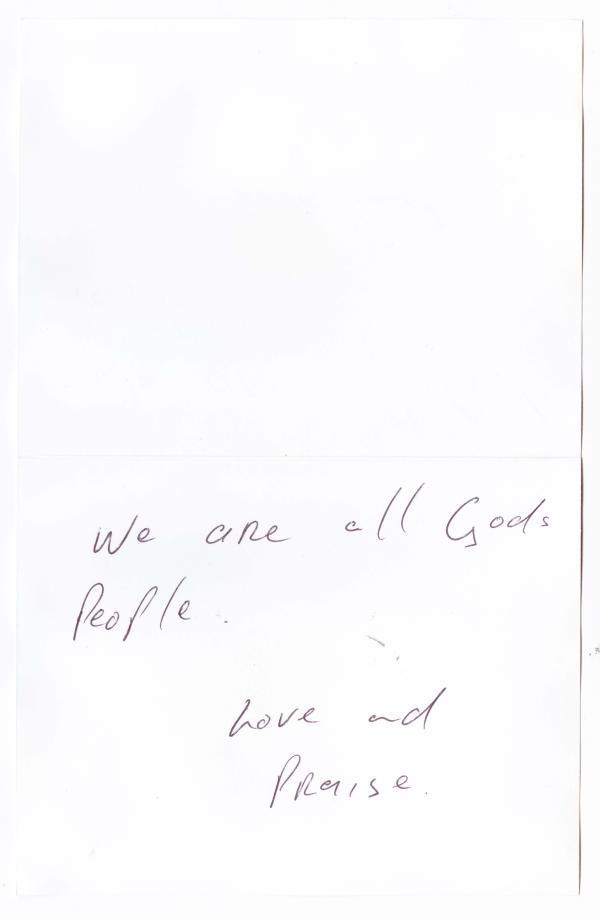 We are all Gods
People.
Love and
Praise.